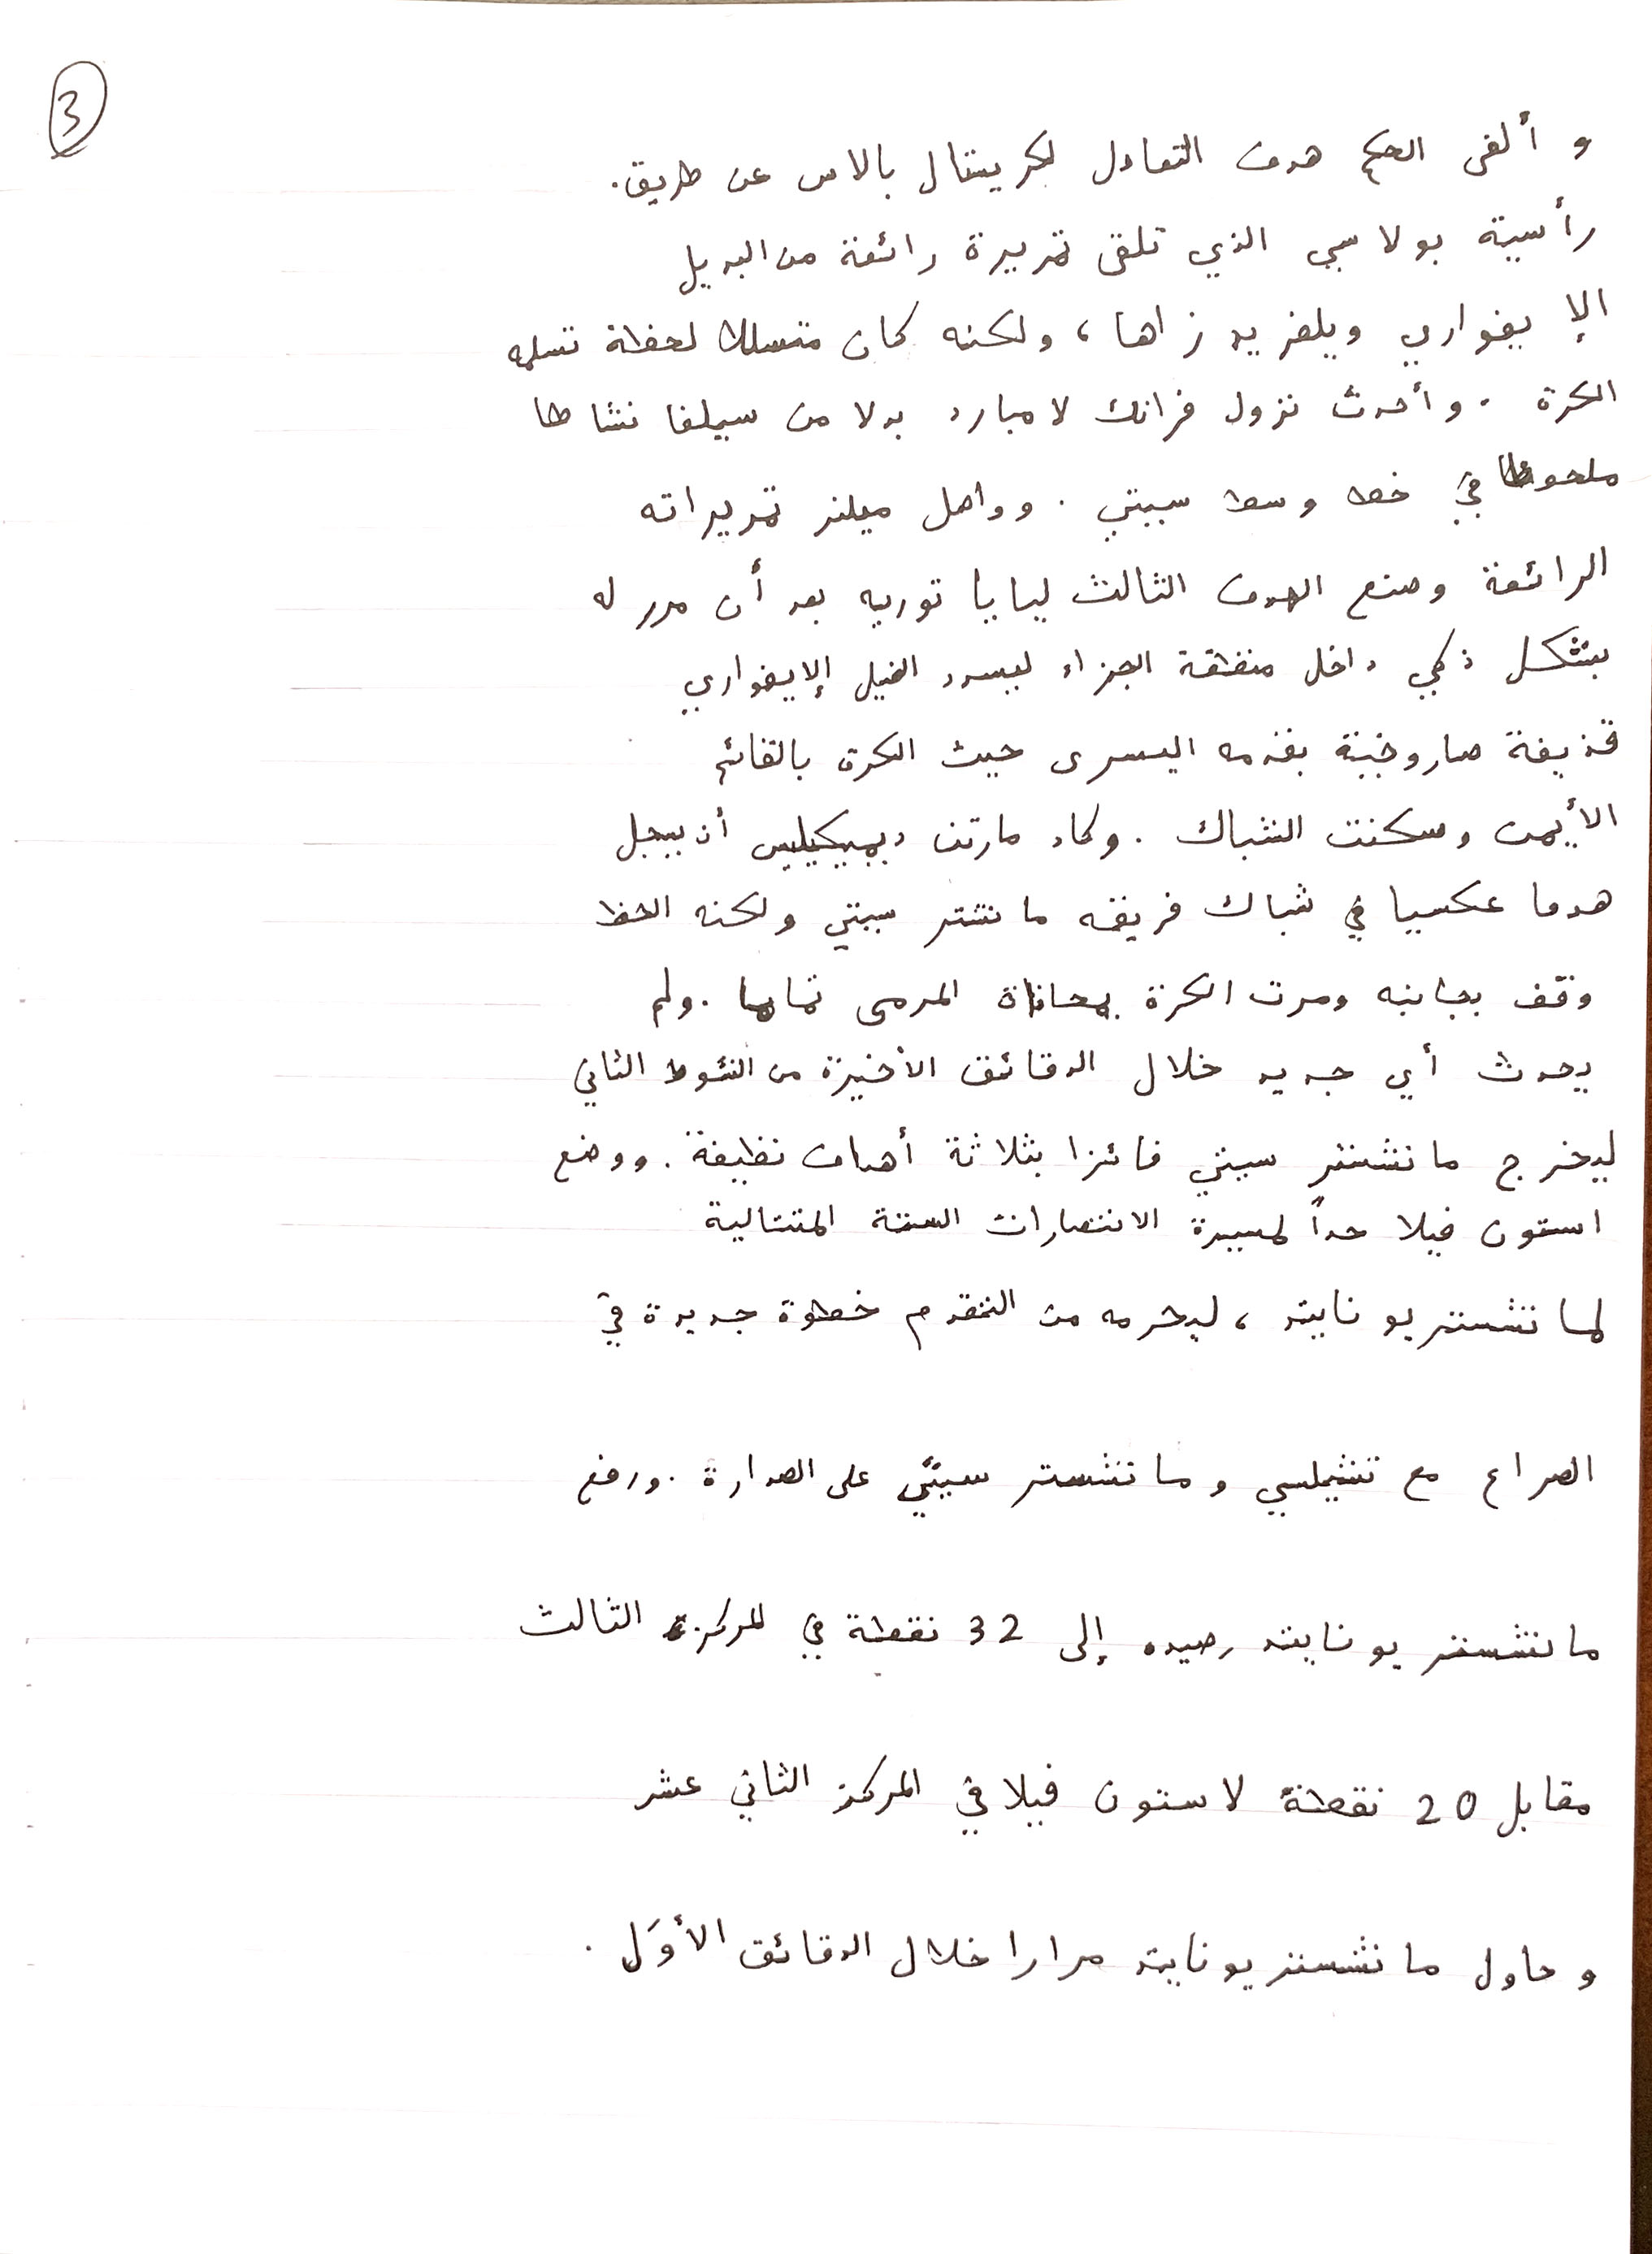 3
و ألغى الحكم هدف التعادل لكريستال بالاس عن طريق.
رأسية بولاسي الذي تلقى تمريرة رائعة من البديل
الإيفواري ويلفريد زاها، ولكنه كان متسللا لحظة تسلمه
الكرة . وأحدث نزول فرانك لامبارد بدلا من سيلفا نشاطا
ملحوظا في خط وسط سيتي . وواصل ميلنر تمريراته
الرائعة وصنع الهدف الثالث ليايا توريه بعد أن مرر له
بشكل ذكي داخل منطقة الجزاء ليسدد الفيل الإيفواري
قذيفة صاروخية بقدمه اليسرى حيث الكرة بالقائم
الأيمن وسكنت الشباك . وكاد مارتن ديميكيليس أن يسجل
هدفا عكسيا في شباك فريقه مانشتر سيتي ولكنه الحظ
وقف بجانبه ومرت الكرة بمحاذاة المرمى تماما . ولم
يحدث أي جديد خلال الدقائق الأخيرة من الشوط الثاني
ليخرج مانشستر سيتي فائزا بثلاثة أهداف نظيفة . ووضع
استون فيلا حداً لمسيرة الانتصارات الستة المتتالية
لمانشستر يونايتد ، ليحرمه من التقدم خطوة جديدة في
الصراع مع تشيلسي ومانشستر سيتي على الصدارة . ورفع
مانشستر يونايتد رصيده إلى 32 نقطة في المركز الثالث
مقابل 20 نقطة لاستون فيلا في المركز الثاني عشر
و حاول مانشستر يونايتد مرارا خلال الدقائق الأوَل .